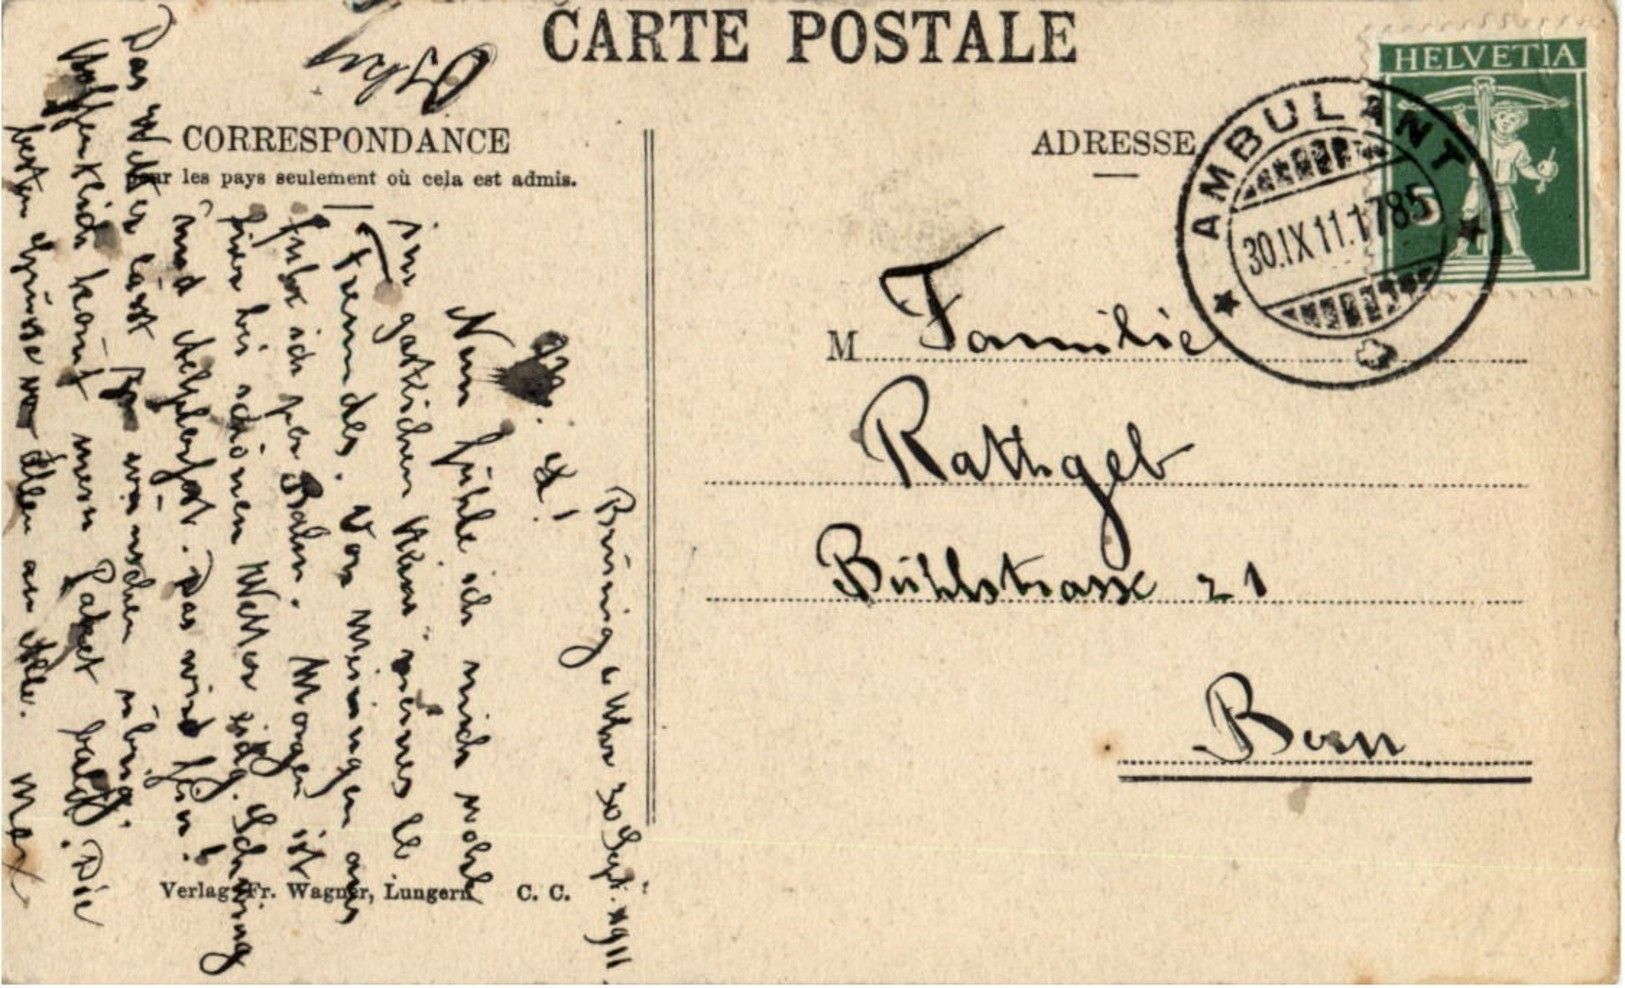 CARTE POSTALE
CORRESPONDANCE
pour les pays seulement où cela est admis.
ADRESSE
HELVETIA
5
AMBULANT
30.IX 11.1785
M Familie
Rathgeb
Bühlstrasse 21
Bern
Brünig, 30 Sept. 1911
M. L!
Nun fühle ich mich wohl
im gastlichen Heim meines lb.
Freundes. Von Meiringen aus
fuhr ich per Bahn. Morgen ist
hier bei schönem Wetter Schwing
und Älplerfest. Das wird fein!
Das Wetter lässt zu wünschen übrig.
Hoffentlich kommt mein Paket bald! Die
besten Grüsse von Allen an Alle. Max
Verlag Fr. Wagner, Lungern C. C.